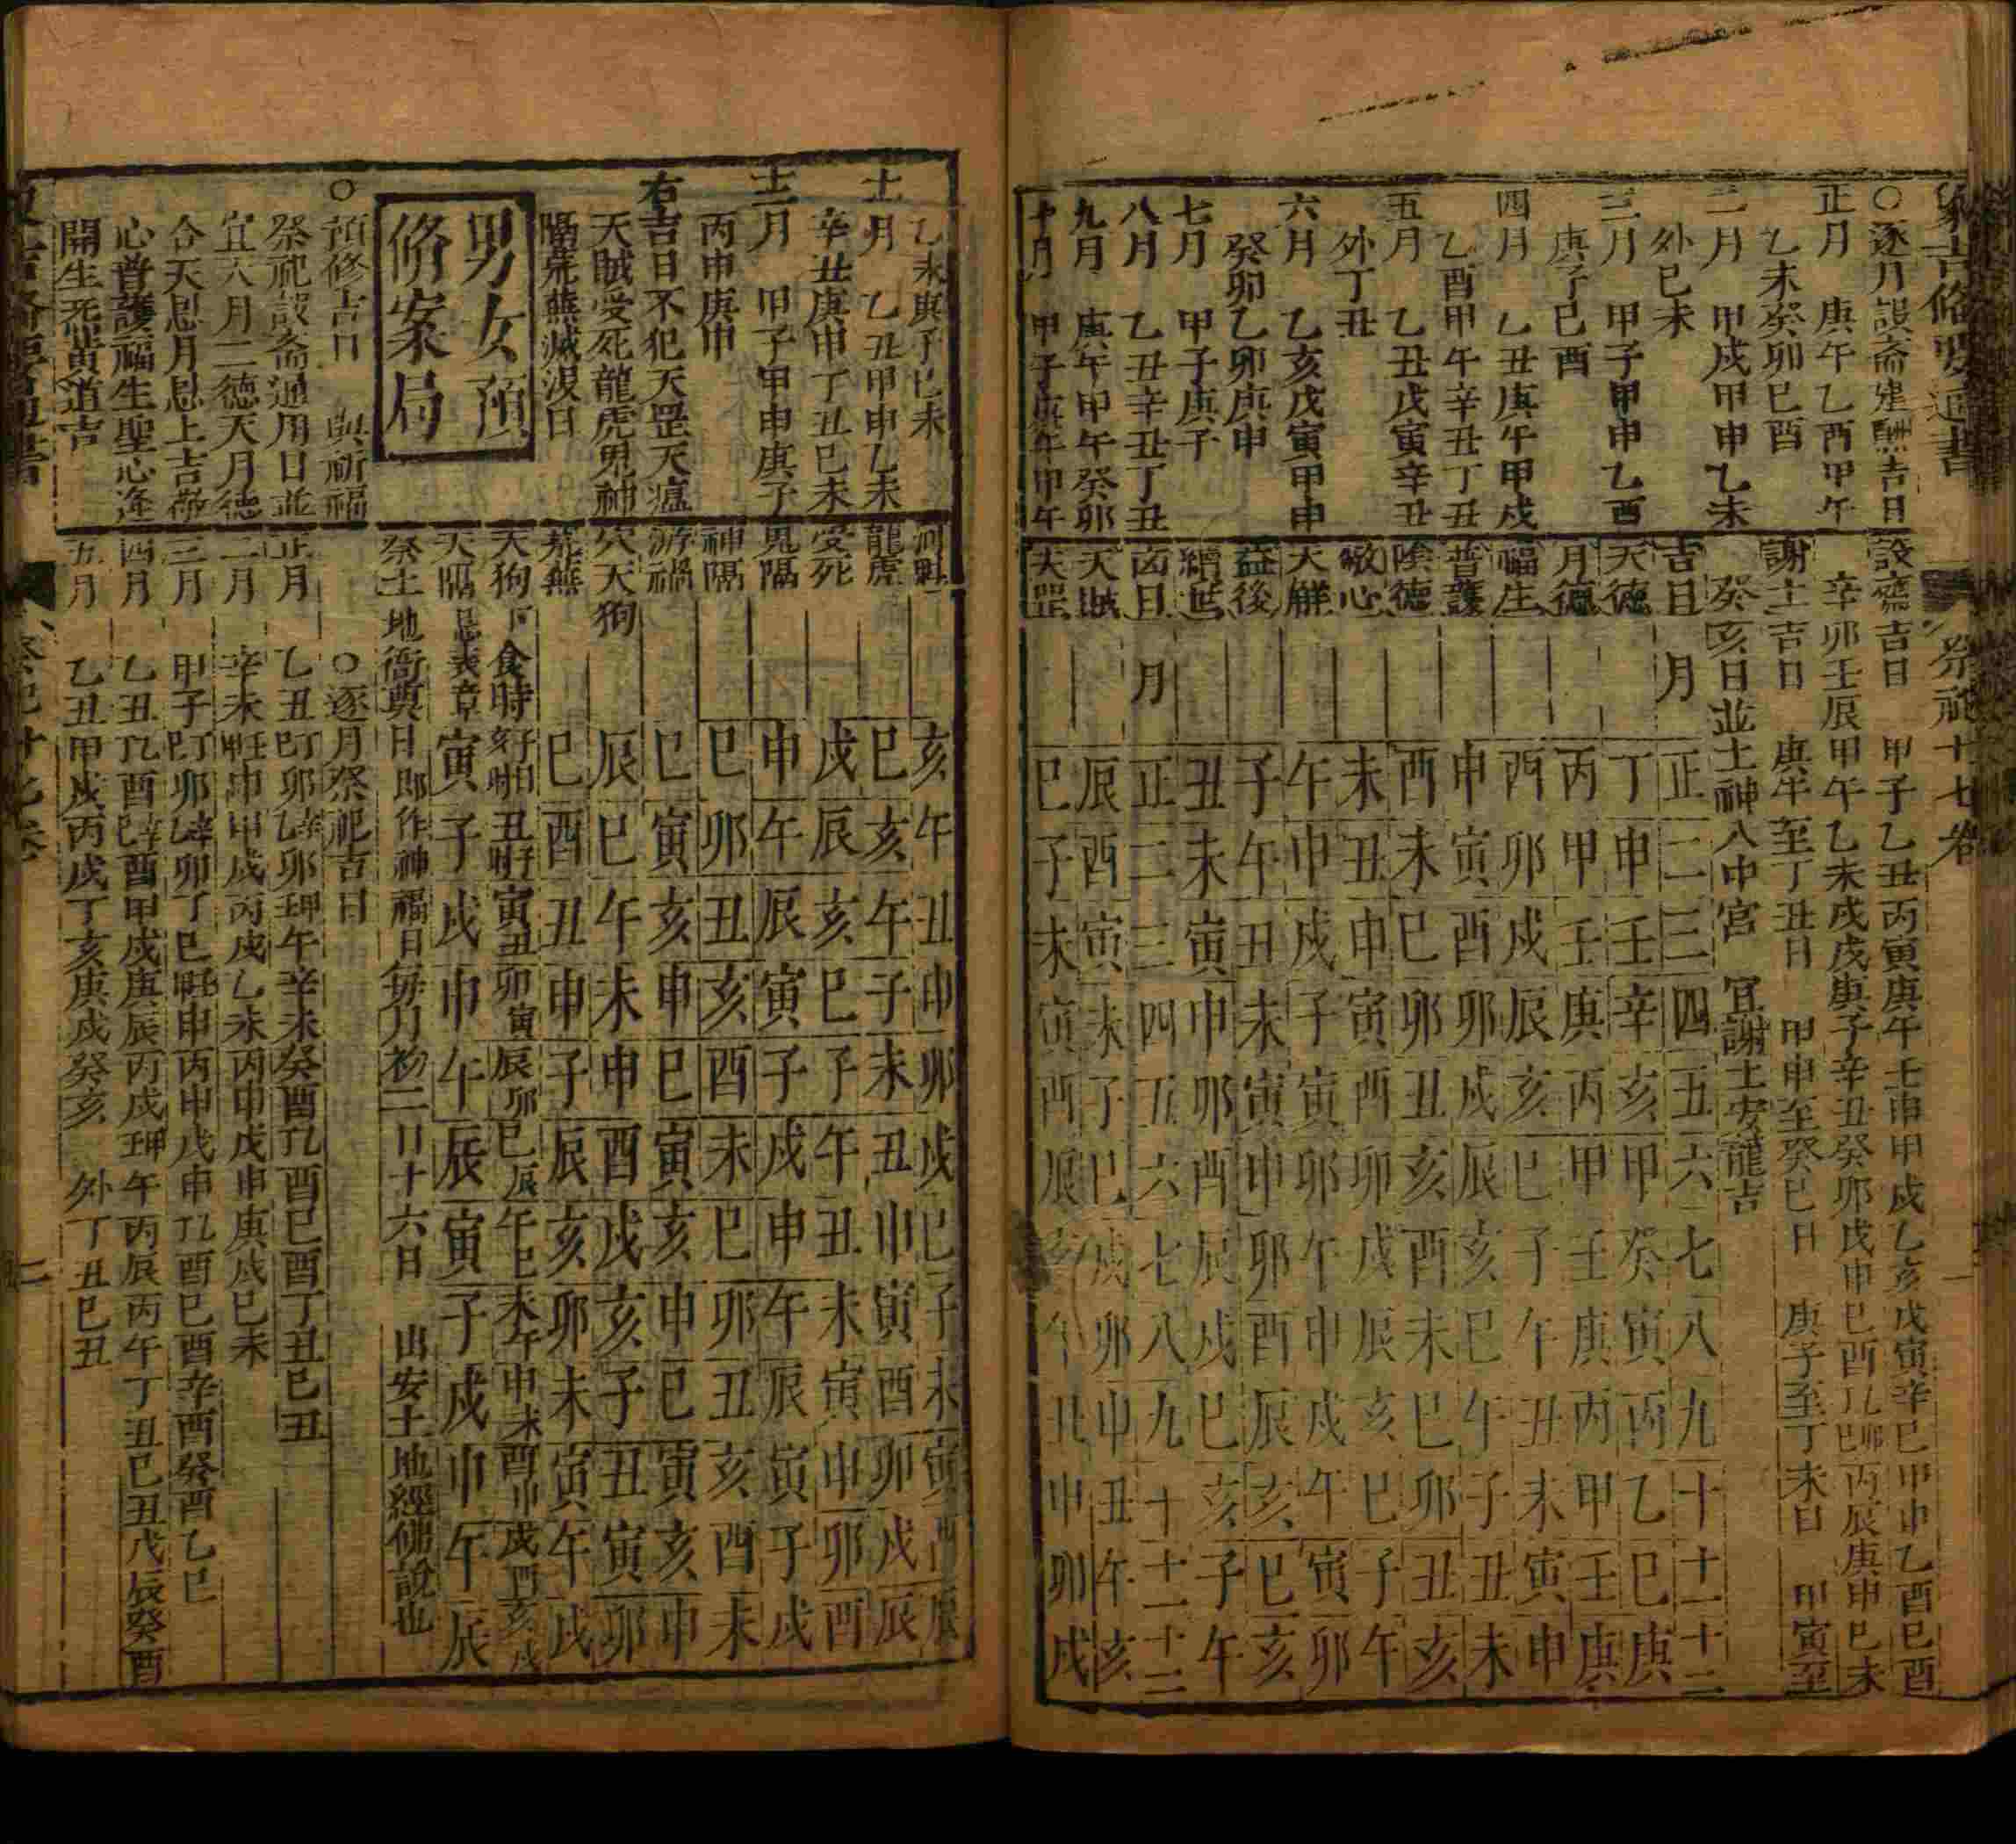 象吉脩要通書
祭祀十七卷
○逐月設齋建醮吉日
正月 庚午乙酉甲午
乙未癸卯巳酉
二月 甲戌甲申乙未
外巳未
三月 甲子甲申乙酉
庚子巳酉
四月 乙丑庚午甲戌
乙酉甲午辛丑丁丑
五月 乙丑戊寅辛丑
外丁丑
六月 乙亥戊寅甲申
癸卯乙卯庚申
七月 甲子庚子
八月 乙丑辛丑丁丑
九月 庚午甲午癸卯
十月 甲子庚午甲午
設齋吉日 甲子乙丑丙寅庚午壬申甲戌乙亥戊寅辛巳甲申乙酉巳酉
辛卯壬辰甲午乙未戊戌庚子辛丑癸卯戊申巳酉 丙辰庚申巳未
謝土吉日 庚午至丁丑日 甲申至癸巳日 庚子至丁未日 甲寅至
癸亥日並土神八中宮 宜謝土安龍吉
吉日 月 正二三四五六七八九十十一十二
天德 丁申壬辛亥甲癸寅丙乙巳庚
月德 丙甲壬庚丙甲壬庚丙甲壬庚
福生 酉卯戌辰亥巳子午丑未寅申
普護 申寅酉卯戌辰亥巳午子丑未
陰德 酉未巳卯丑亥酉未巳卯丑亥
敬心 未丑申寅酉卯戌辰亥巳子午
天解 午申戌子寅卯午申戌午寅卯
益後 子午丑未寅申卯酉辰亥巳亥
續世 丑未寅申卯酉辰戌巳亥子午
凶日 月 正二三四五六七八九十十一十二
天賊 辰酉寅未子巳戌卯申丑午亥
天罡 巳子未寅酉辰亥午丑申卯戌
乙未庚子巳未
十一月 乙丑甲申乙未
辛丑庚申丁丑巳未
十二月 甲子甲申庚子
丙申庚申
右吉日不犯天罡天瘟
天賊受死龍虎鬼神
隔荒蕪滅没日
男女預
脩案局
○預修吉日 與祈福
祭祀設齋通用日並
宜六月二德天月德
合天恩月恩上吉敬
心普護福生聖心逢
開生死黃道吉
河魁 亥午丑申卯戌巳子未寅酉辰
龍虎 巳亥午子未丑申寅酉卯戌辰
受死 戌辰亥巳子午丑未寅申卯酉
鬼隔 申午辰寅子戌申午辰寅子戌
神隔 巳卯丑亥酉未巳卯丑亥酉未
游禍 巳寅亥申巳寅亥申巳寅亥申
穴天狗 辰巳午未申酉戌亥子丑寅卯
荒蕪 巳酉丑申子辰亥卯未寅午戌
天狗 下食時 丑 寅丑 卯寅 辰卯 巳辰 午巳 未午 申未 酉申 戌酉 亥戌
天隔 忌表章 寅子戌申午辰寅子戌申午辰
祭土 地衙奠日即作神福日每月初二日十六日 出安土地經佛說也
○逐月祭祀吉日
正月 乙丑丁卯乙卯 午辛未癸酉 酉巳酉丁丑巳丑
二月 辛未 申甲戌丙戌乙未丙申戊申庚戌巳未
三月 甲子 卯 卯丁巳 申丙申戊申 酉巳酉辛酉癸酉乙巳
四月 乙丑 酉 酉甲戌庚辰丙戌 午丙辰丙午丁丑巳丑戊辰癸酉
五月 乙丑甲戌丙戌丁亥庚戌癸亥 外丁丑巳丑